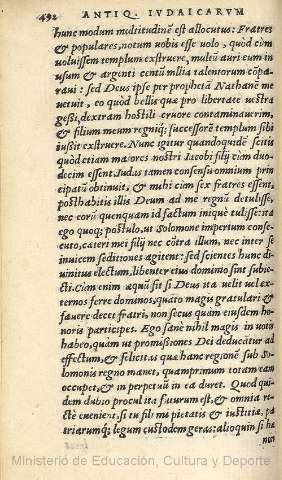 492 ANTIQ. IVDAICARVM
hunc modum multitudinē est allocutus: Fratres
& populares, notum uobis esse uolo, quòd cùm
uoluissem templum exstruere, multū auri cum in
usum & argenti centū millia talentorum cōpa-
raui: sed Deus ipse per prophetā Nathanē me
uetuit, eo quòd bellis quæ pro libertate uestra
gessi, dextram hostili cruore contaminauerim,
& filium meum regniq; successorē templum sibi
iussit exstruere. Nunc igitur quandoquidē scitis
quòd etiam maiores nostri Iacobi filij cùm duo-
decim essent Iudas tamen consensu omnium prin
cipatū obtinuit, & mihi cùm sex fratres essent,
posthabitis illis Deum ad me regnū detulisse,
nec eorū quenquam id factum iniquè tulisse: ita
ego quoq; postulo, ut Solomone imperium conse-
cuto, cæteri mei filij nec cōtra illum, nec inter se
inuicem seditiones agitent: sed scientes hunc di-
uinitus electum, libenter etus dominio sint subie-
cti. Cùm enim æquū sit si Deus ita uelit uel ex-
ternos ferre dominos, quato magis gratulari &
fauere decet fratri, non secus quàm eiusdem ho-
noris participes. Ego sanè nihil magis in uotis
habeo, quàm ut promissiones Dei deducātur ad
effectum, & felicitas quæ hanc regionē sub So-
lomonis regno manet, quamprimum totam eam
occupet, & in perpetuū in ea duret. Quod qui-
dem dubio procul ita futurum est, & omnia re-
ctè euenient, si tu fili mi pietatis & iustitiæ, pa
triarumq; legum custodem geras: alioquin si ha
non
Ministerio de Educación, Cultura y Deporte